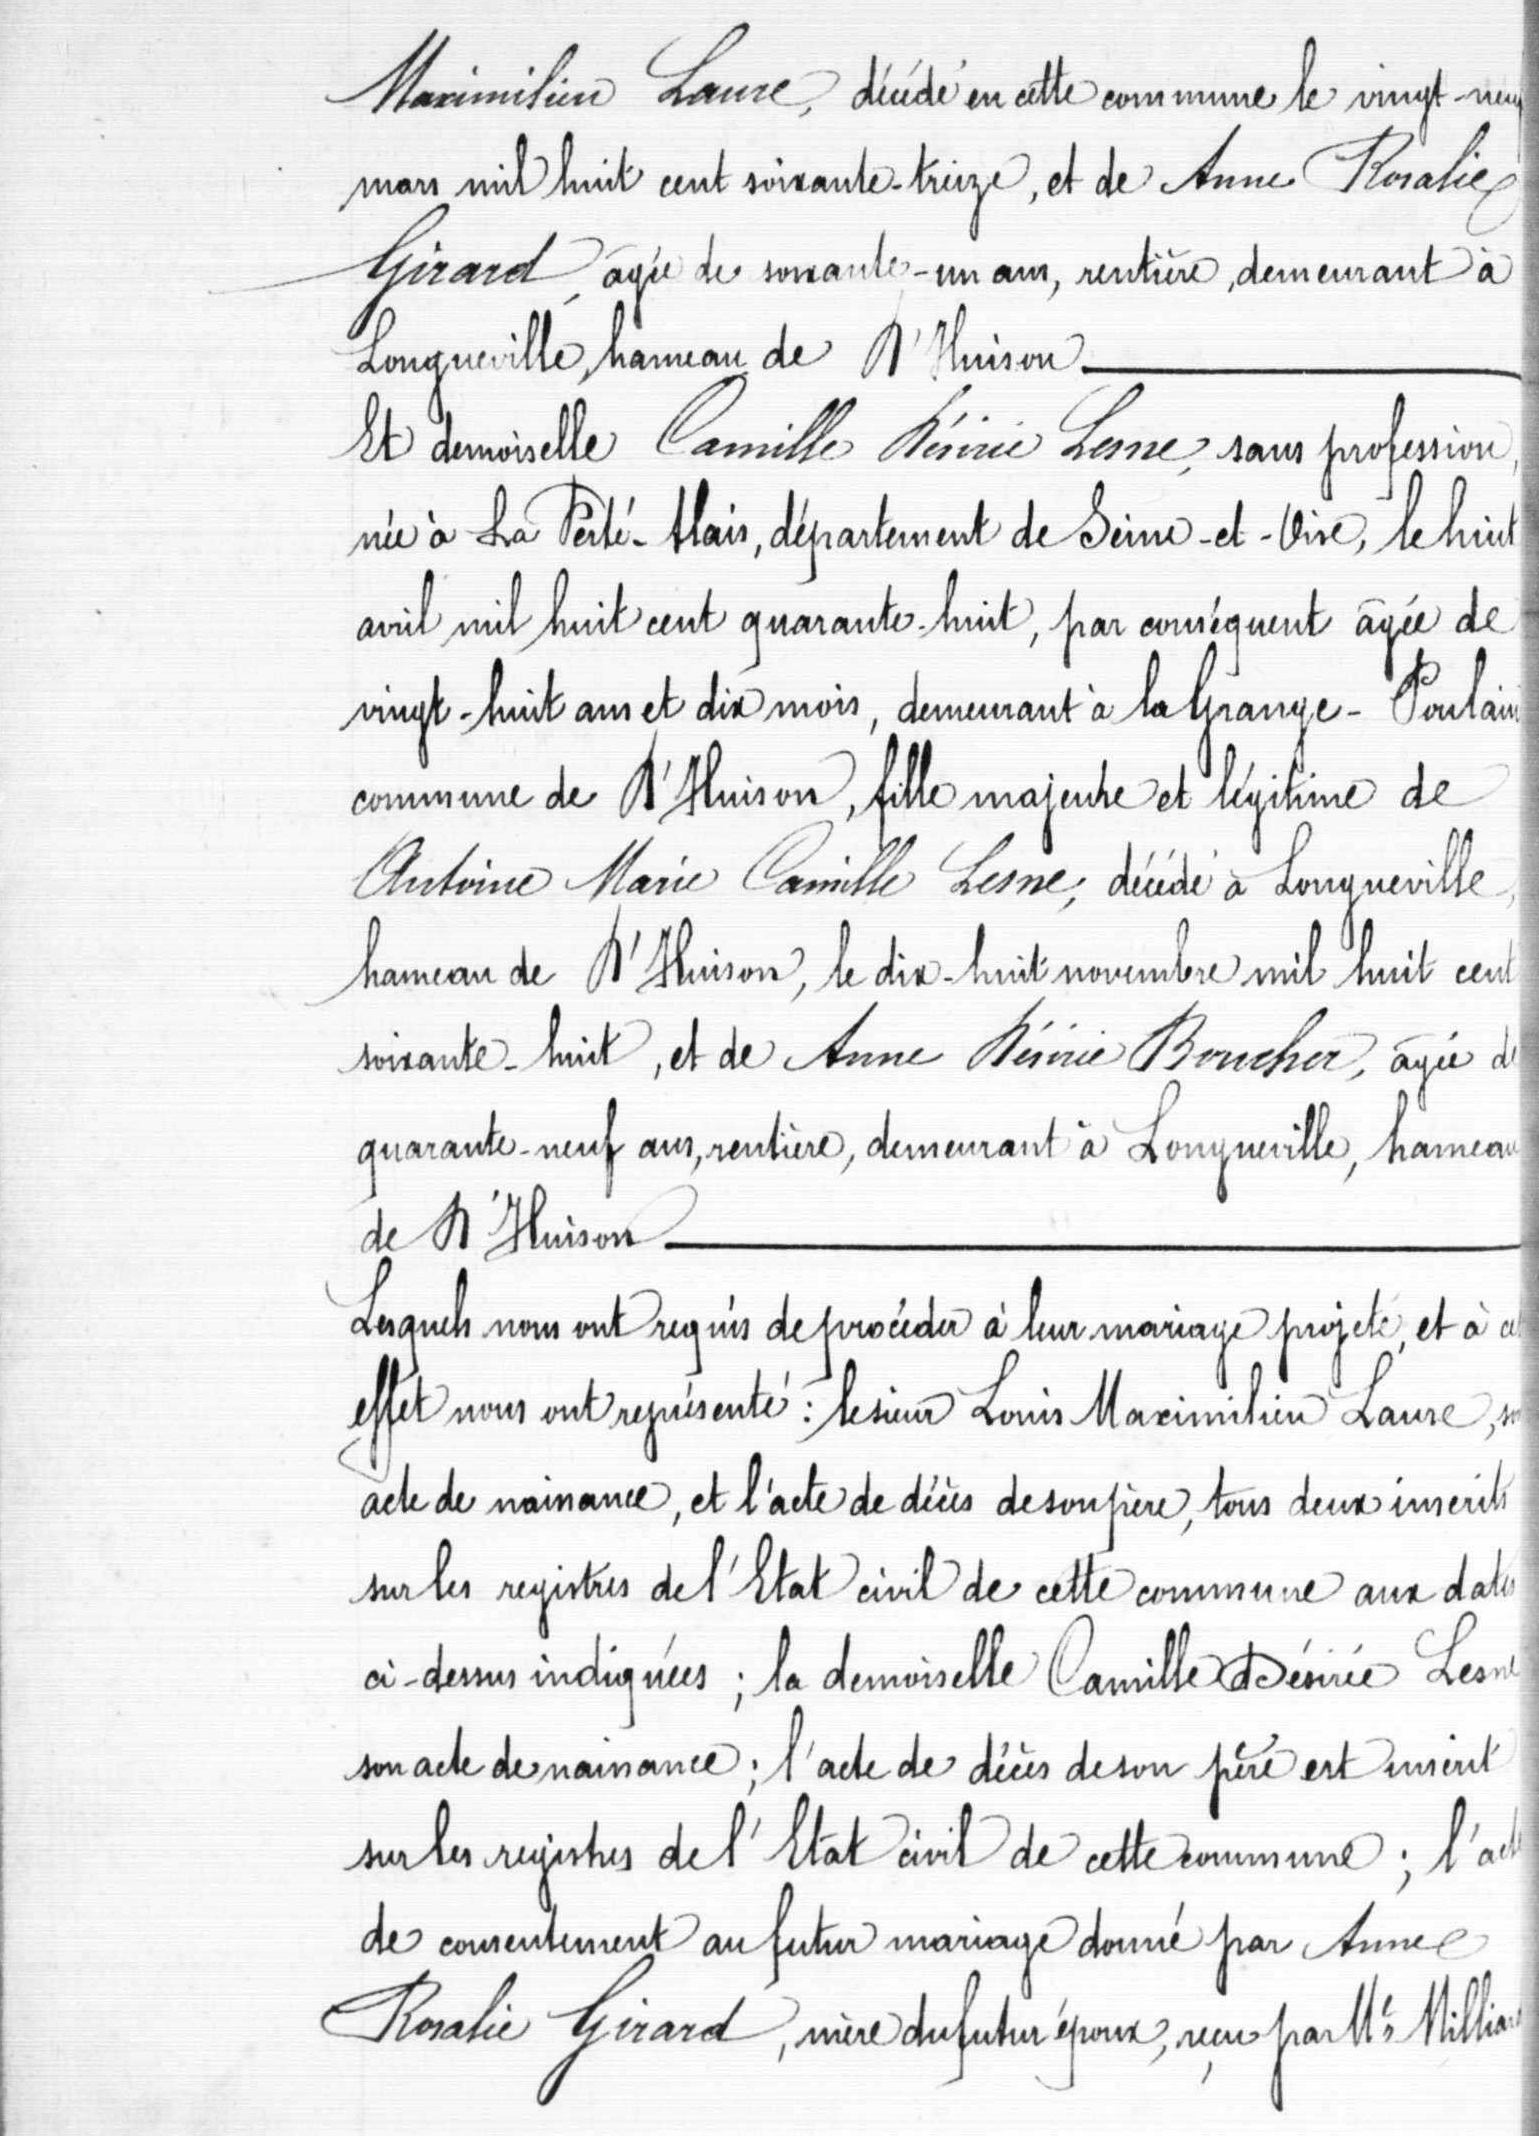 Maximilien Laure, décédé en cette commune le vingt-neuf
mars mil huit cent soixante-treize, et de Anne Rosalie
Girard, âgée de soixante-un ans, rentière, demeurant à
Longueville, hameau de D'Huison
Et demoiselle Camille Désirée Lesne, sans profession,
née à La Ferté-Alais, département de Seine-et-Oise, le huit
avril mil huit cent quarante-huit, par conséquent âgée de
vingt-huit ans et dix mois, demeurant à la Grange-Poulain
commune de D'Huison, fille majeure et légitime de
Antoine Marie Camille Lesne, décédé à Longueville,
hameau de D'Huison, le dix-huit novembre mil huit cent
soixante-huit, et de Anne Désirée Boucher, âgée de
quarante-neuf ans, rentière, demeurant à Longueville, hameau
de D'Huison
Lesquels nous ont requis de procéder à leur mariage projeté, et à cet
effet nous ont représenté : le sieur Louis Maximilien Laure, son
acte de naissance, et l'acte de décès de son père, tous deux inscrits
sur les registres de l'Etat civil de cette commune aux dates
ci-dessus indiquées ; la demoiselle Camille Désirée Lesne
son acte de naissance ; l'acte de décès de son père est inscrit
sur les registres de l'Etat civil de cette commune ; l'acte
de consentement au futur mariage donné par Anne
Rosalie Girard, mère du futur époux, reçu par Me Milliard